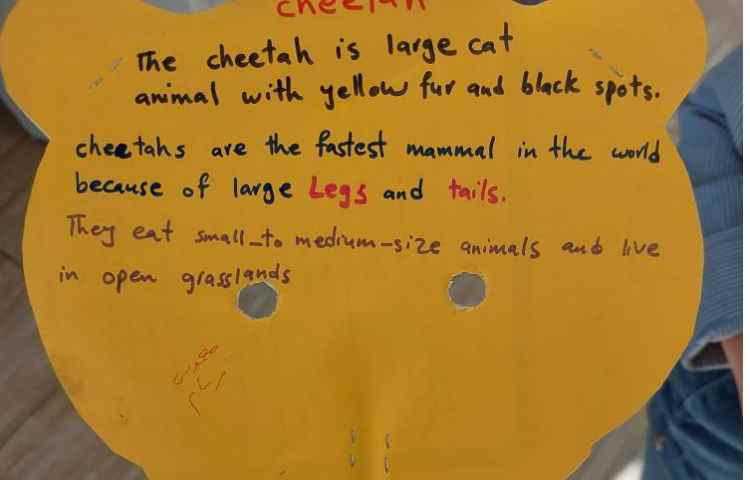 cheetah
The cheetah is large cat
animal with yellow fur and black spots.
cheetahs are the fastest mammal in the world
because of large Legs and tails.
They eat small_to medium-size animals and live
in open grasslands